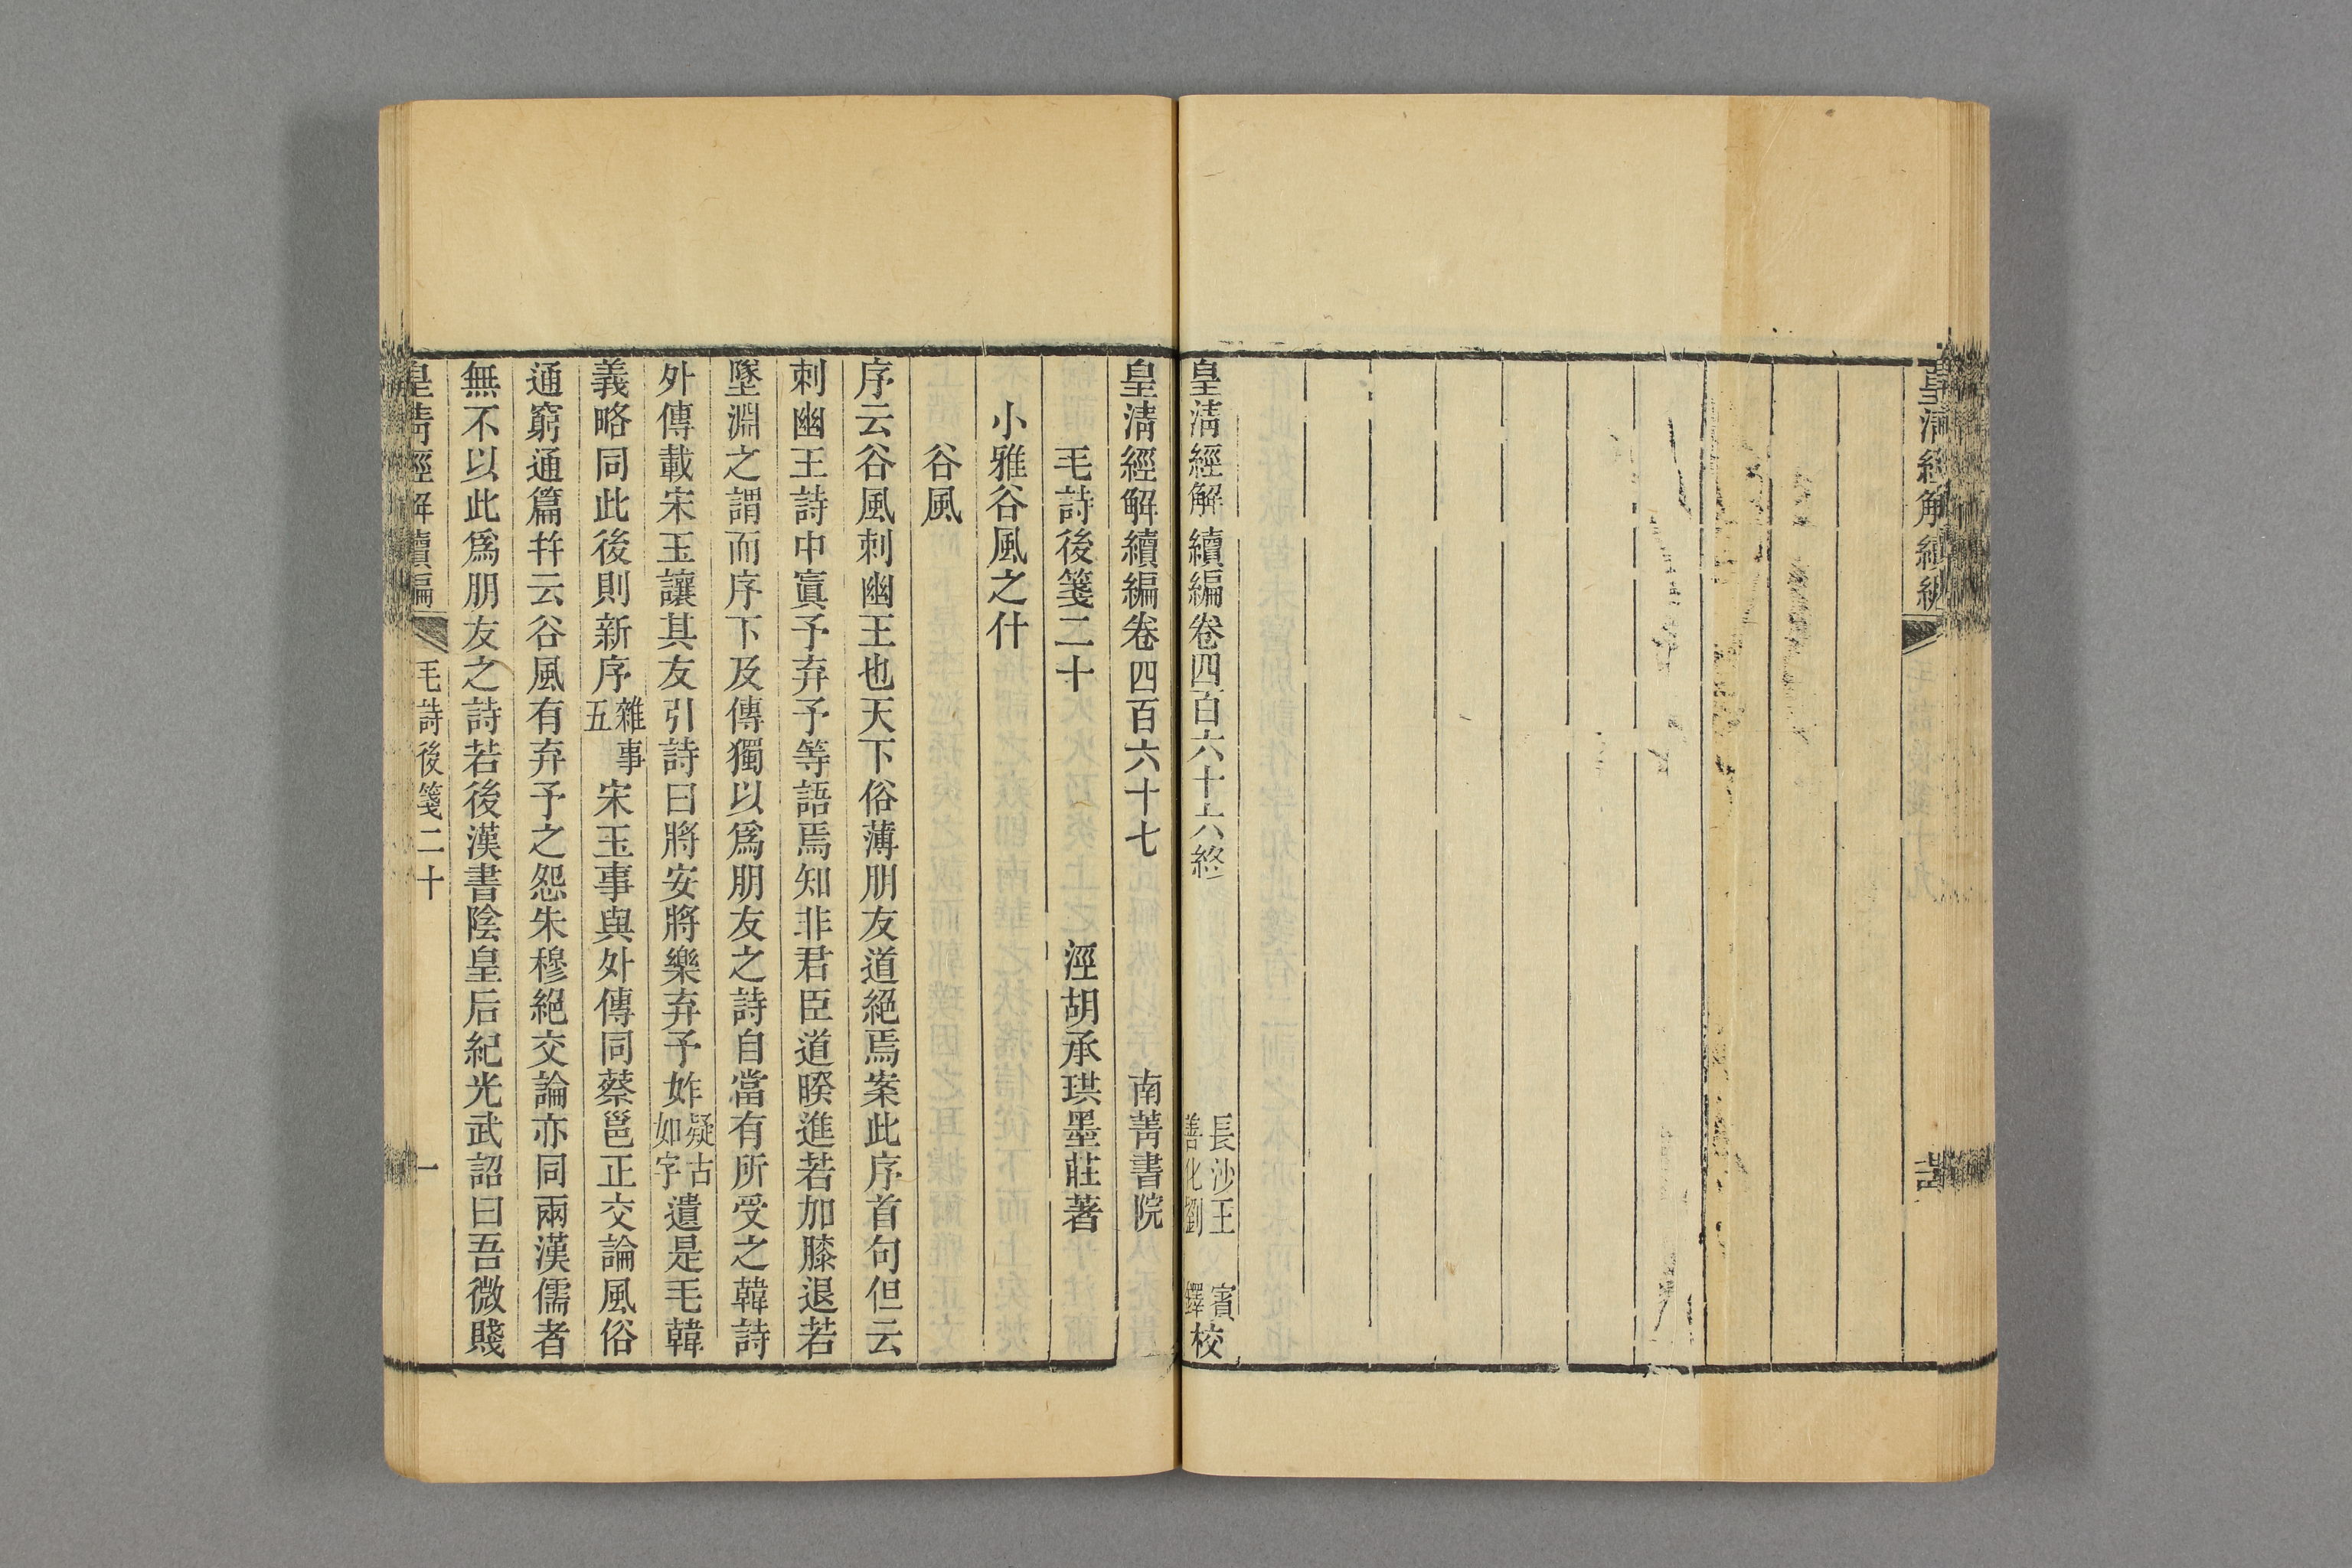 皇清經解續編
皇清經解續編卷四百六十六終
長沙王
賓
善化劉
鐸
校
皇清經解續編卷四百六十七
南菁書院
毛詩後箋二十
涇胡承珙墨莊著
小雅谷風之什
谷風
序云谷風刺幽王也天下俗薄朋友道絕焉案此序首句但云
刺幽王詩中寘予弃予等語焉知非君臣道暌進若加膝退若
墜淵之謂而序下及傳獨以爲朋友之詩自當有所受之韓詩
外傳載宋玉讓其友引詩曰將安將樂弃予妰疑古如字遺是毛韓
義略同此後則新序雜事五宋玉事與外傳同蔡邕正交論風俗
通窮通篇幷云谷風有弃予之怨朱穆絕交論亦同兩漢儒者
無不以此爲朋友之詩若後漢書陰皇后紀光武詔曰吾微賤
皇清經解續編
毛詩後箋二十
一